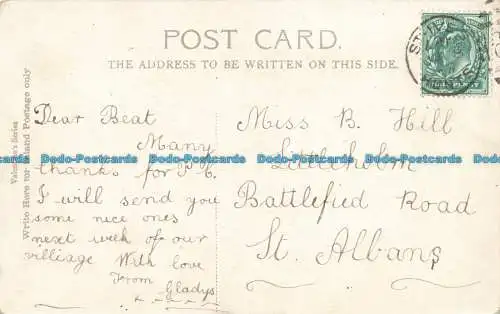 POST CARD.
THE ADDRESS TO BE WRITTEN ON THIS SIDE.
Valentine's Series
Write Here for Inland Postage only
Dear Beat
Many
thanks for P.C.
I will send you
some nice ones
next week of our
villiage With love
From
Gladys
Miss B. Hill
Littleholm
Battlefied Road
St. Albans
Dodo-Postcards Dodo-Postcards Dodo-Postcards Dodo-Postcards Dodo-Postcards